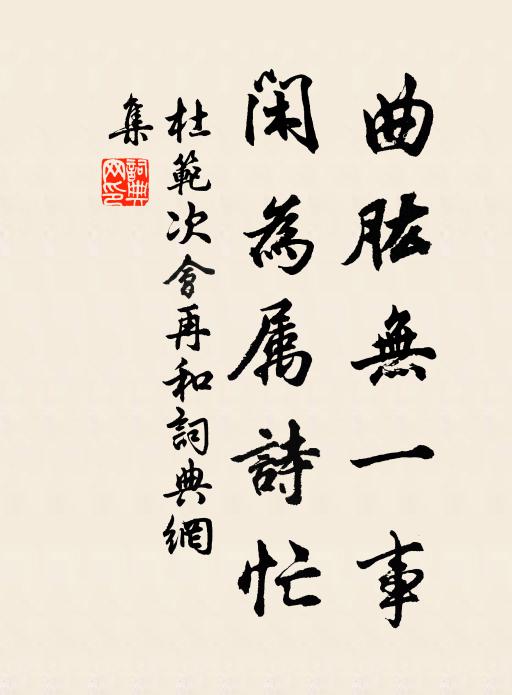 曲肱無一事
閑為属詩忙
杜範次會再和詞典網
集
詞典網印